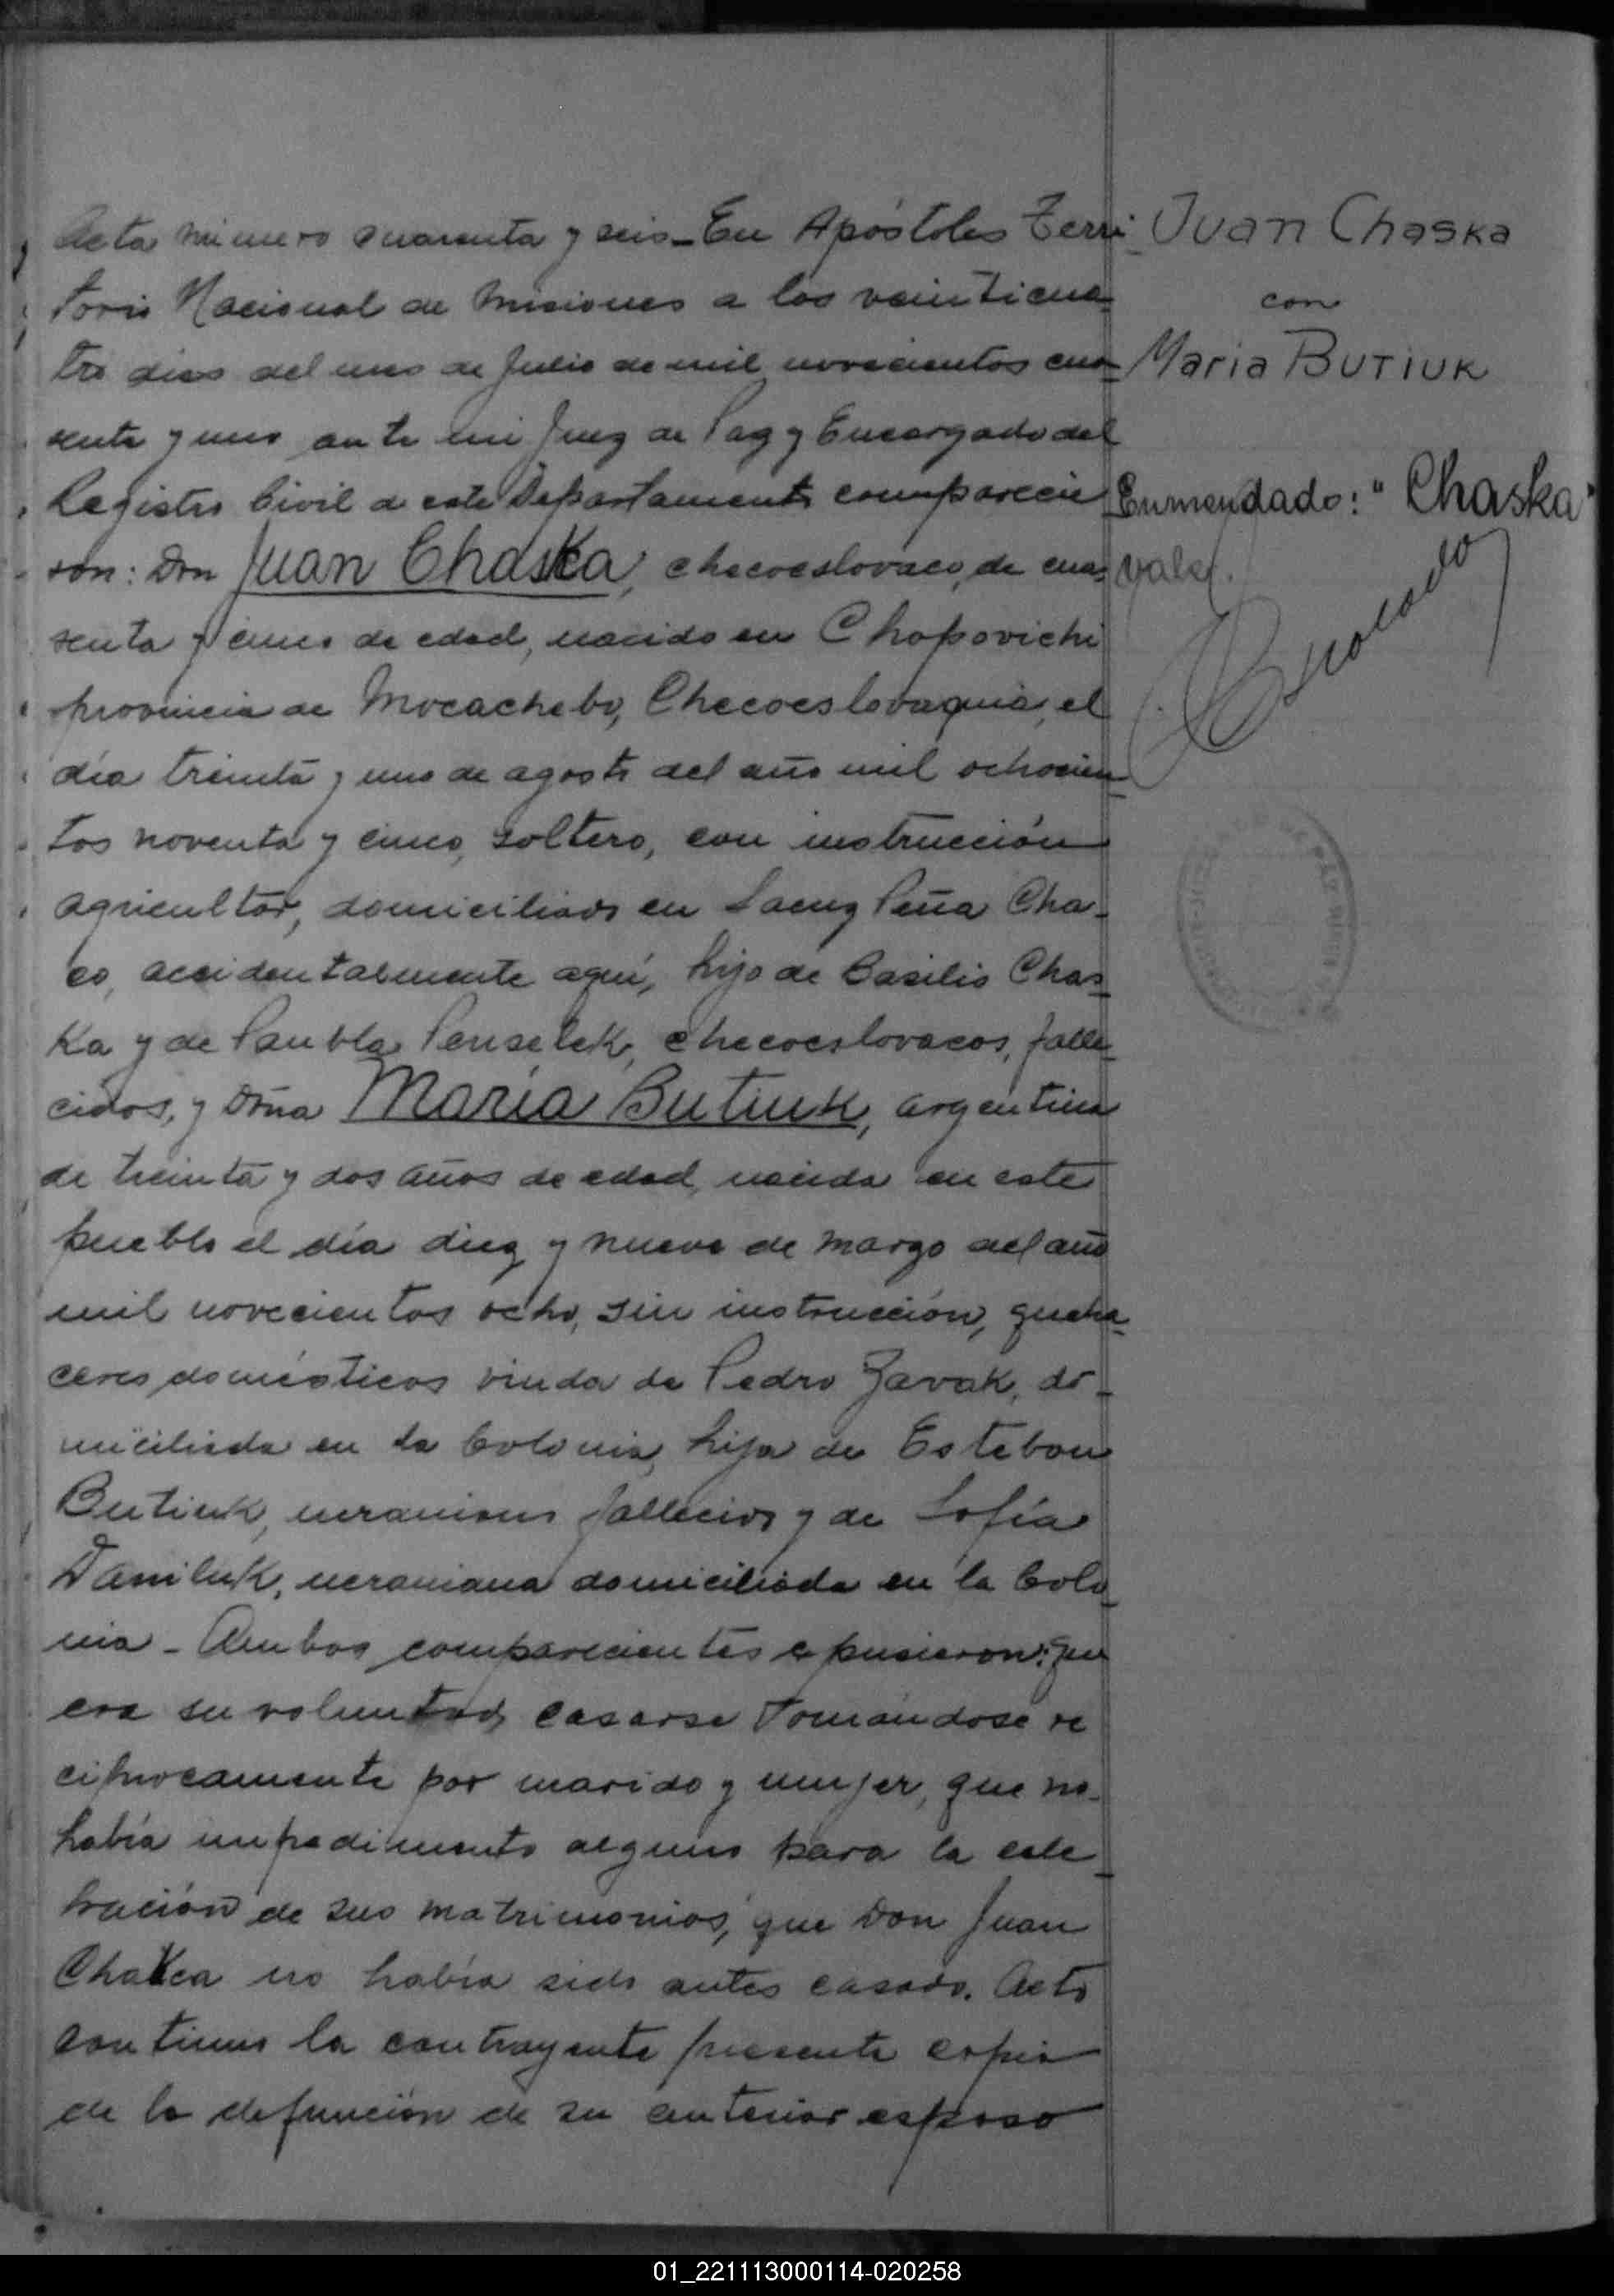 Acta número cuarenta y seis - En Apóstoles Terri
torio Nacional de Misiones a los veinticua
tro dias del mes de Julio de mil novecientos cua
renta y uno ante mi Juez de Paz y Encargado del
Registro Civil de este Departamento comparecie
ron: Don Juan Chaska, checoeslovaco, de cua
renta y cinco de edad, nacido en Chopovichi
provincia de Mocachebo, Checoeslovaquia, el
día treinta y uno de agosto del año mil ochocien
tos noventa y cinco, soltero, con instrucción
agricultor, domiciliado en Saenz Peña Cha-
co, accidentalmente aquí, hijo de Basilio Chas
ka y de Paubla Penselek, checoeslovacos, falle
cidos, y Doña María Butiuk, argentina
de treinta y dos años de edad, nacida en este
pueblo el día diez y nueve de marzo del año
mil novecientos ocho, sin instrucción, queha
ceres domésticos viuda de Pedro Zavak, do-
miciliada en la Colonia, hija de Esteban
Butiuk, ucraniano fallecido y de Sofía
Daniluk, ucraniana domiciliada en la Colo
nia - Ambos comparecientes expusieron: que
era su voluntad casarse tomándose re
ciprocamente por marido y mujer, que no
había impedimento alguno para la cele
bración de sus matrimonios, que Don Juan
Chaska no había sido antes casado. Acto
continuo la contrayente presente copia
de la defunción de su anterior esposo
Juan Chaska
con
Maria Butiuk
Enmendado: "Chaska"
vale.
01_221113000114-020258